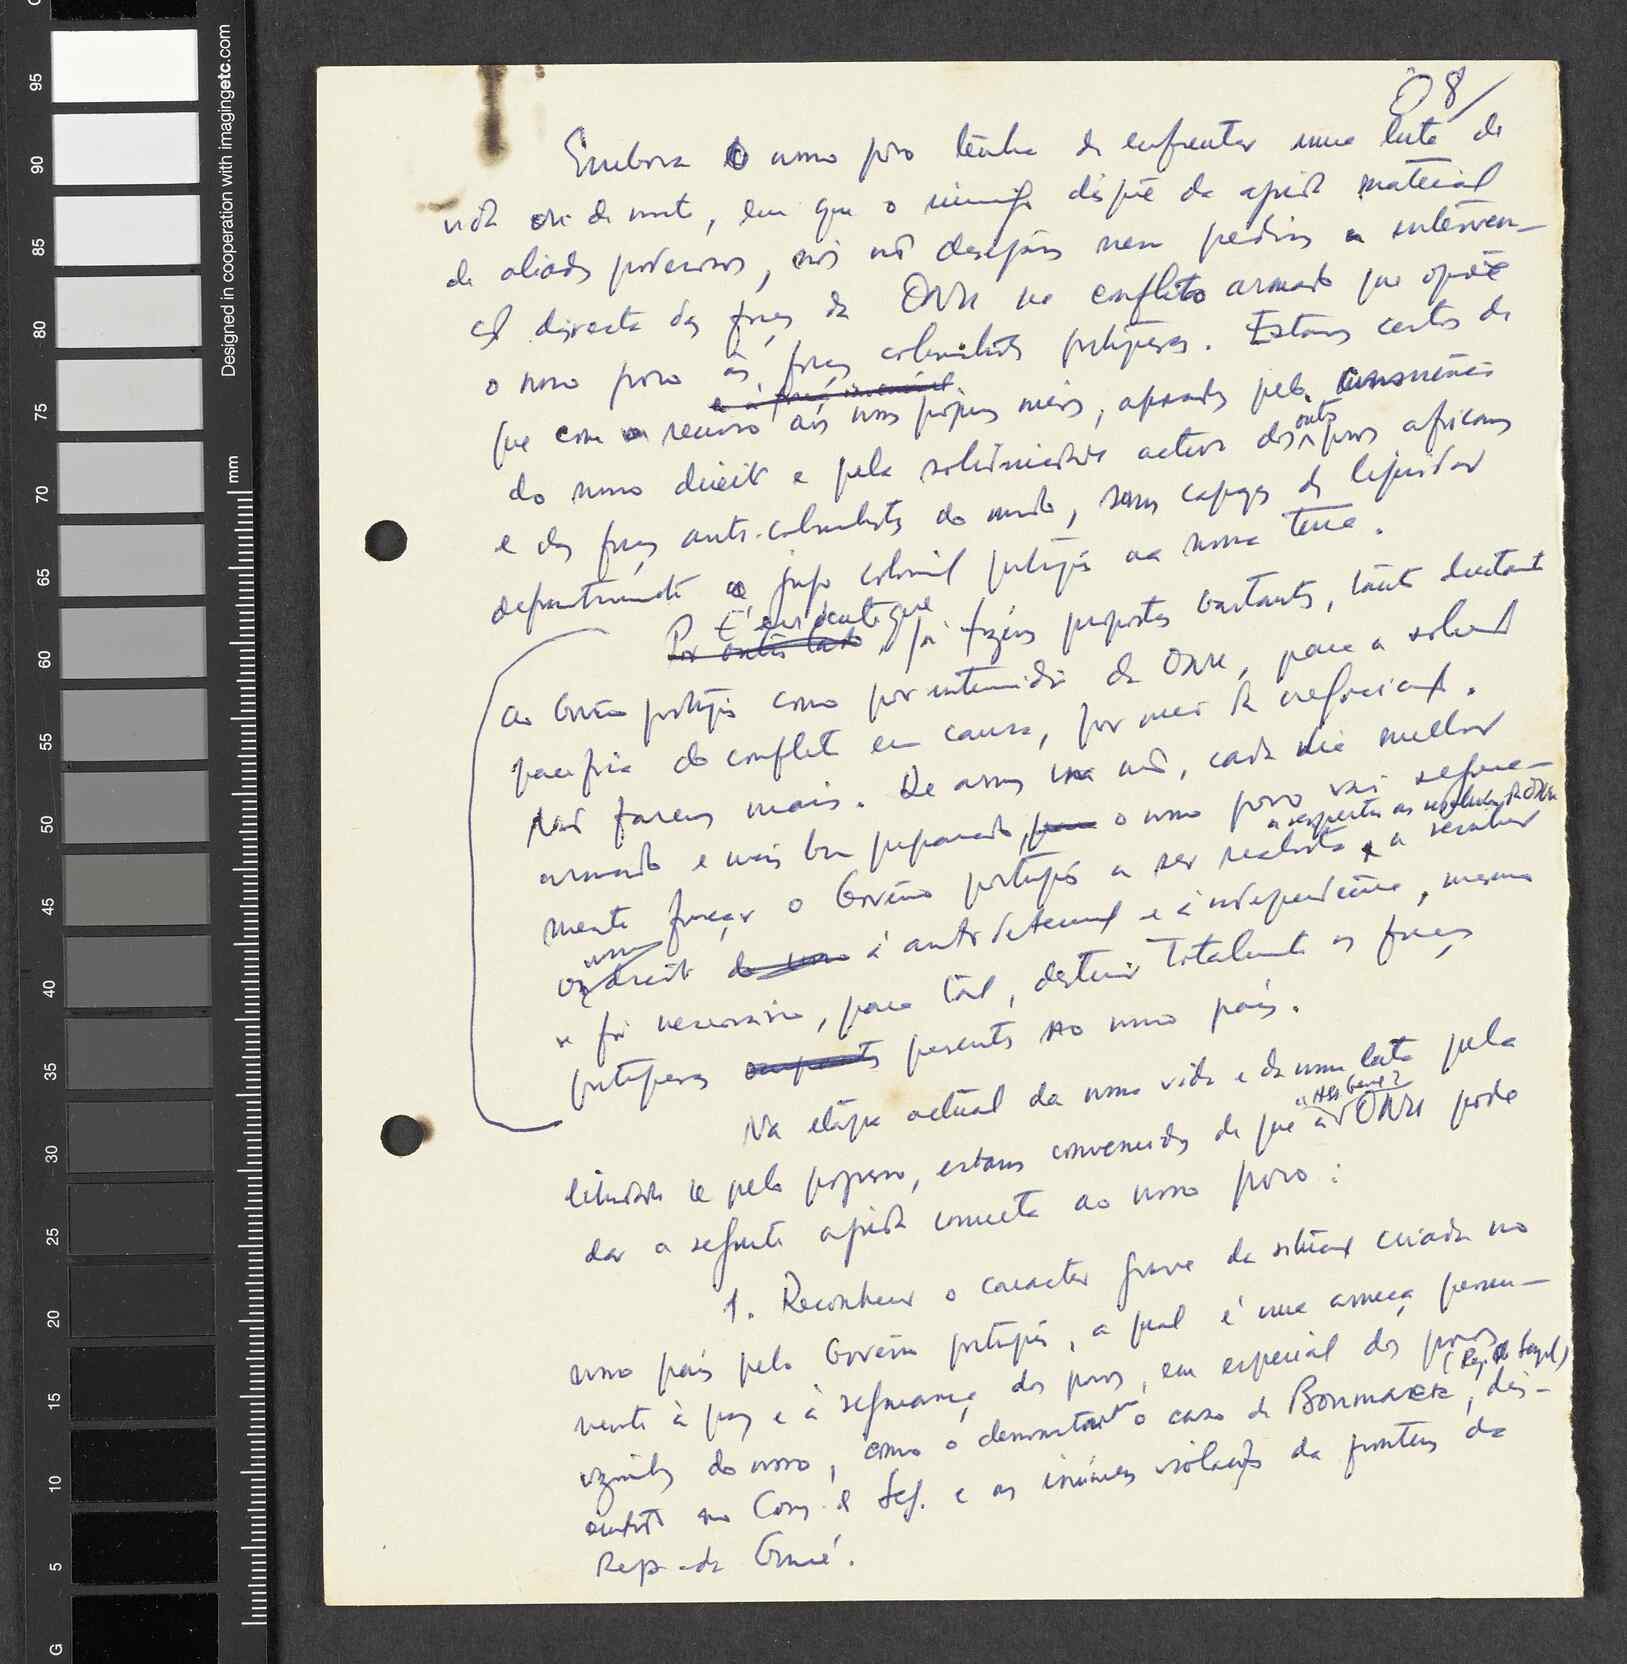 8/
Embora o nosso povo tenha de enfrentar uma luta de
vida ou de morte, em que o inimigo dispõe da ajuda material
de aliados poderosos, nós não desejamos nem pedimos a interven-
ção directa das forças da ONU no conflito armado que opõe
o nosso povo às forças colonialistas portuguesas. Estamos certos de
que com o recurso aos nossos próprios meios, apoiados pela consciência
do nosso direito e pela solidariedade activa dos outros povos africanos
e das forças anti-colonialistas do mundo, somos capazes de liquidar
definitivamente o jugo colonial português na nossa terra.
Por outro lado É evidente que já fizemos propostas bastantes, tanto directamente
ao Govêrno português como por intermédio da ONU, para a solução
pacífica do conflito em causa, por meio de negociações.
Não faremos mais. De armas na mão, cada dia melhor
armado e mais bem preparado, o nosso povo vai segura-
mente forçar o Govêrno português a ser realista, a respeitar as resoluções da ONU a reconhecer
o nosso direito à autodeterminação e à independência, mesmo
se fôr necessário, para tal, destruir totalmente as forças
portuguesas presentes no nosso país.
Na etapa actual da nossa vida e da nossa luta pela
liberdade e pelo progresso, estamos convencidos de que a "Ass. Geral" ONU pode
dar a seguinte ajuda concreta ao nosso povo:
1. Reconhecer o caracter grave da situação criada no
nosso país pelo Govêrno português, a qual é uma ameaça perma-
nente à paz e à segurança dos povos, em especial dos povos
vizinhos do nosso, como o demonstraram o caso de Bounmack (Rep. do Senegal), dis-
cutido no Cons. de Seg. e as inúmeras violações da fronteira da
Rep. da Guiné.